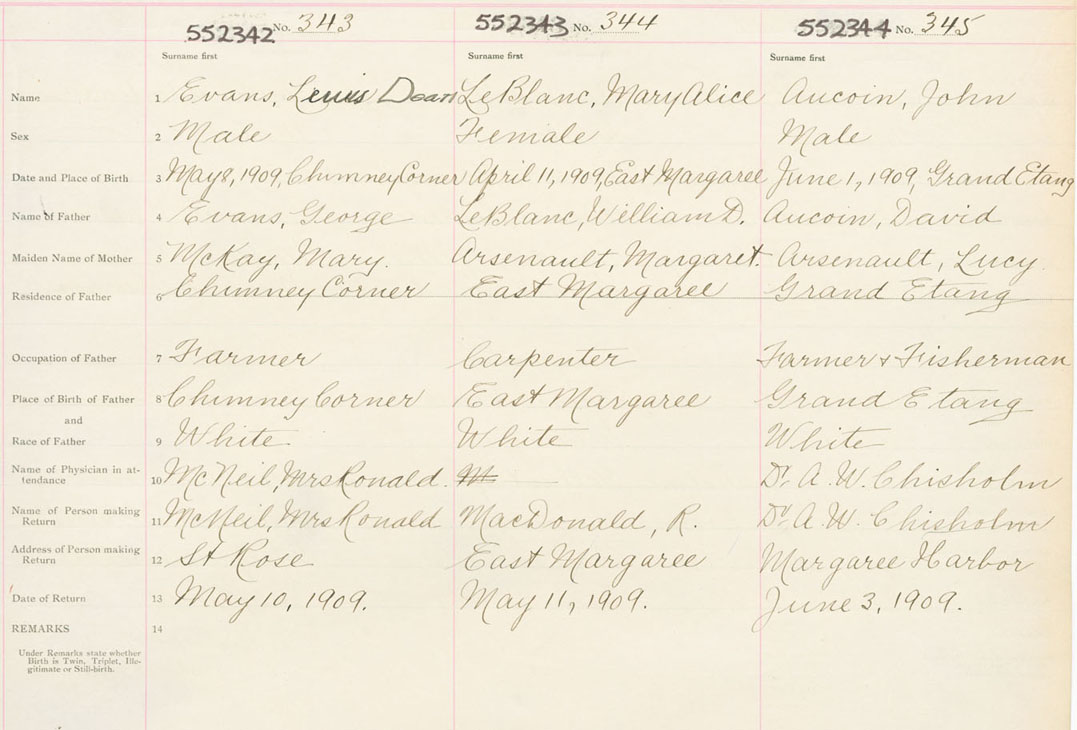 552342 No. 343 552343 No. 344 552344 No. 345
Surname first Surname first Surname first
Name 1 Evans, Lewis Dean LeBlanc, Mary Alice Aucoin, John
Sex 2 Male Female Male
Date and Place of Birth 3 May 8, 1909, Chimney Corner April 11, 1909, East Margaree June 1, 1909, Grand Etang
Name of Father 4 Evans, George LeBlanc, William D. Aucoin, David
Maiden Name of Mother 5 McKay, Mary. Arsenault, Margaret. Arsenault, Lucy.
Residence of Father 6 Chimney Corner East Margaree Grand Etang
Occupation of Father 7 Farmer Carpenter Farmer & Fisherman
Place of Birth of Father 8 Chimney Corner East Margaree Grand Etang
and
Race of Father 9 White White White
Name of Physician in at-
tendance 10 McNeil, Mrs Ronald. Dr. A. W. Chisholm
Name of Person making
Return 11 McNeil, Mrs Ronald MacDonald, R. Dr. A. W. Chisholm
Address of Person making
Return 12 St Rose East Margaree Margaree Harbor
Date of Return 13 May 10, 1909. May 11, 1909. June 3, 1909.
REMARKS 14
Under Remarks state whether
Birth is Twin, Triplet, Ille-
gitimate or Still-birth.